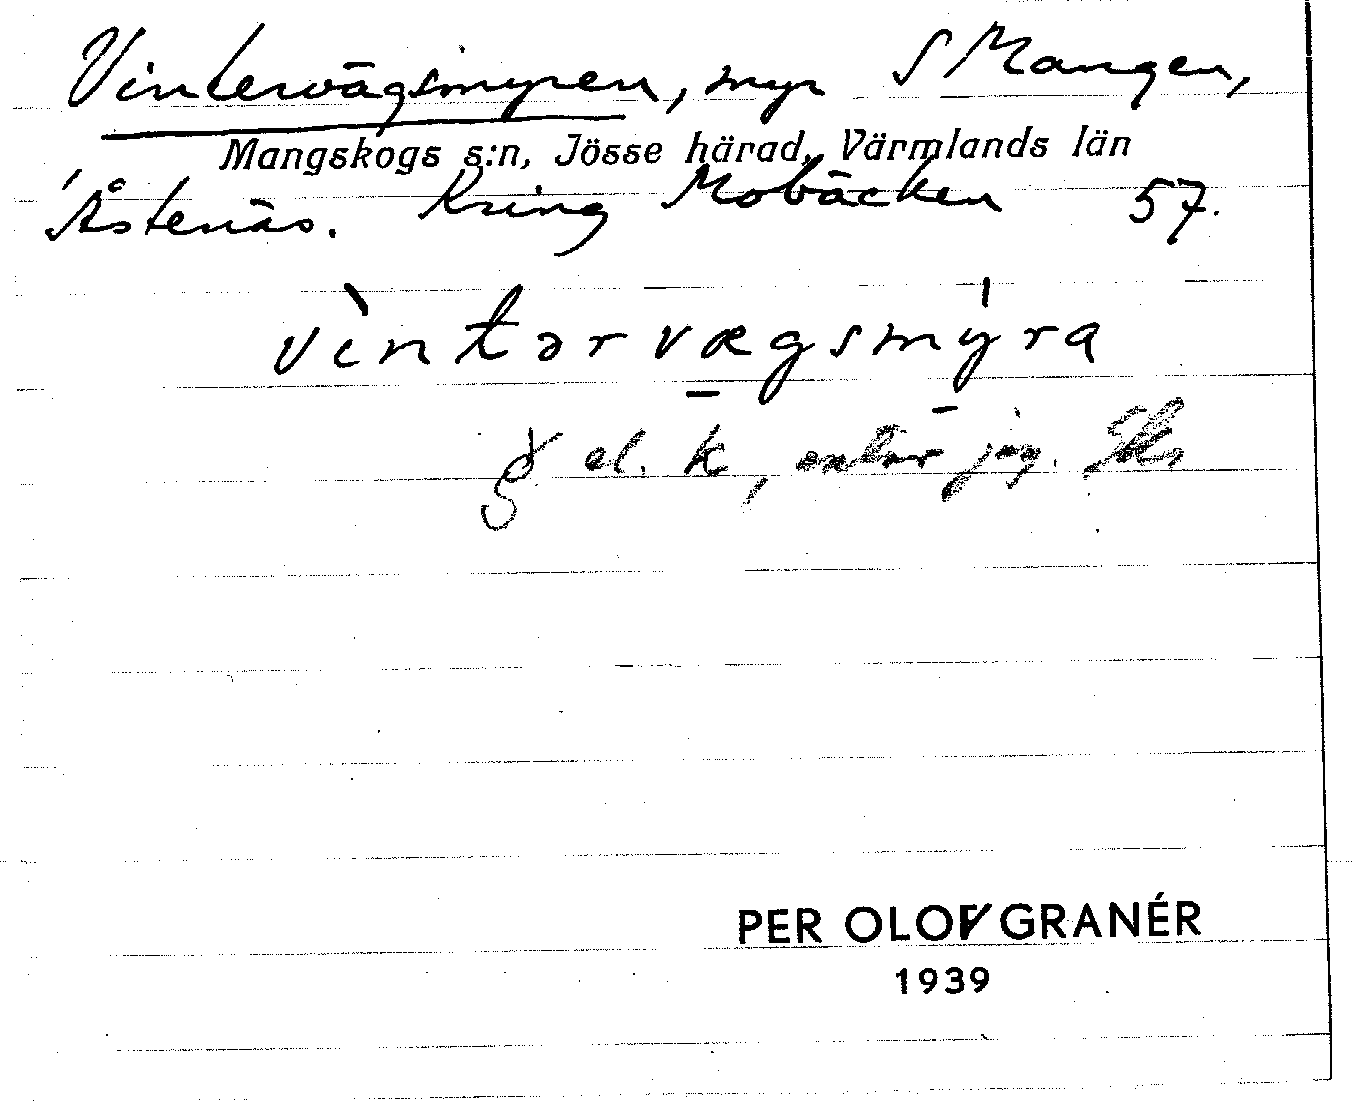 Vintervägsmyren, myr S Mangen,
Mangskogs s:n, Jösse härad, Värmlands län
Åstenäs. Kring Mobäcken 57.
vìntərvægsmýra
el. k, antar jag.
PER OLOV GRANÉR
1939